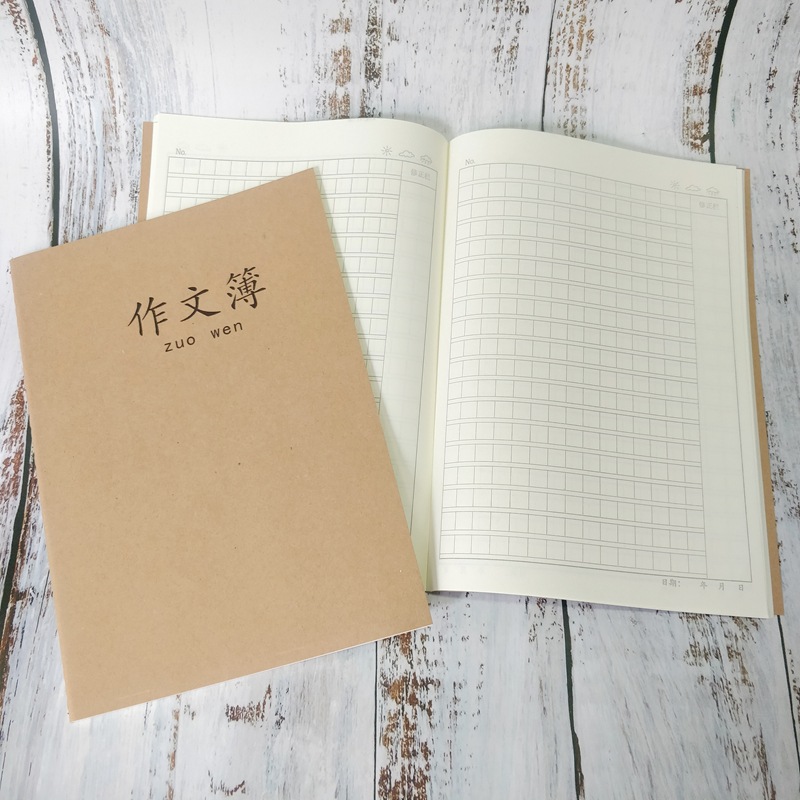 作文簿
zuo wen
No.
No.
日期: 年 月 日